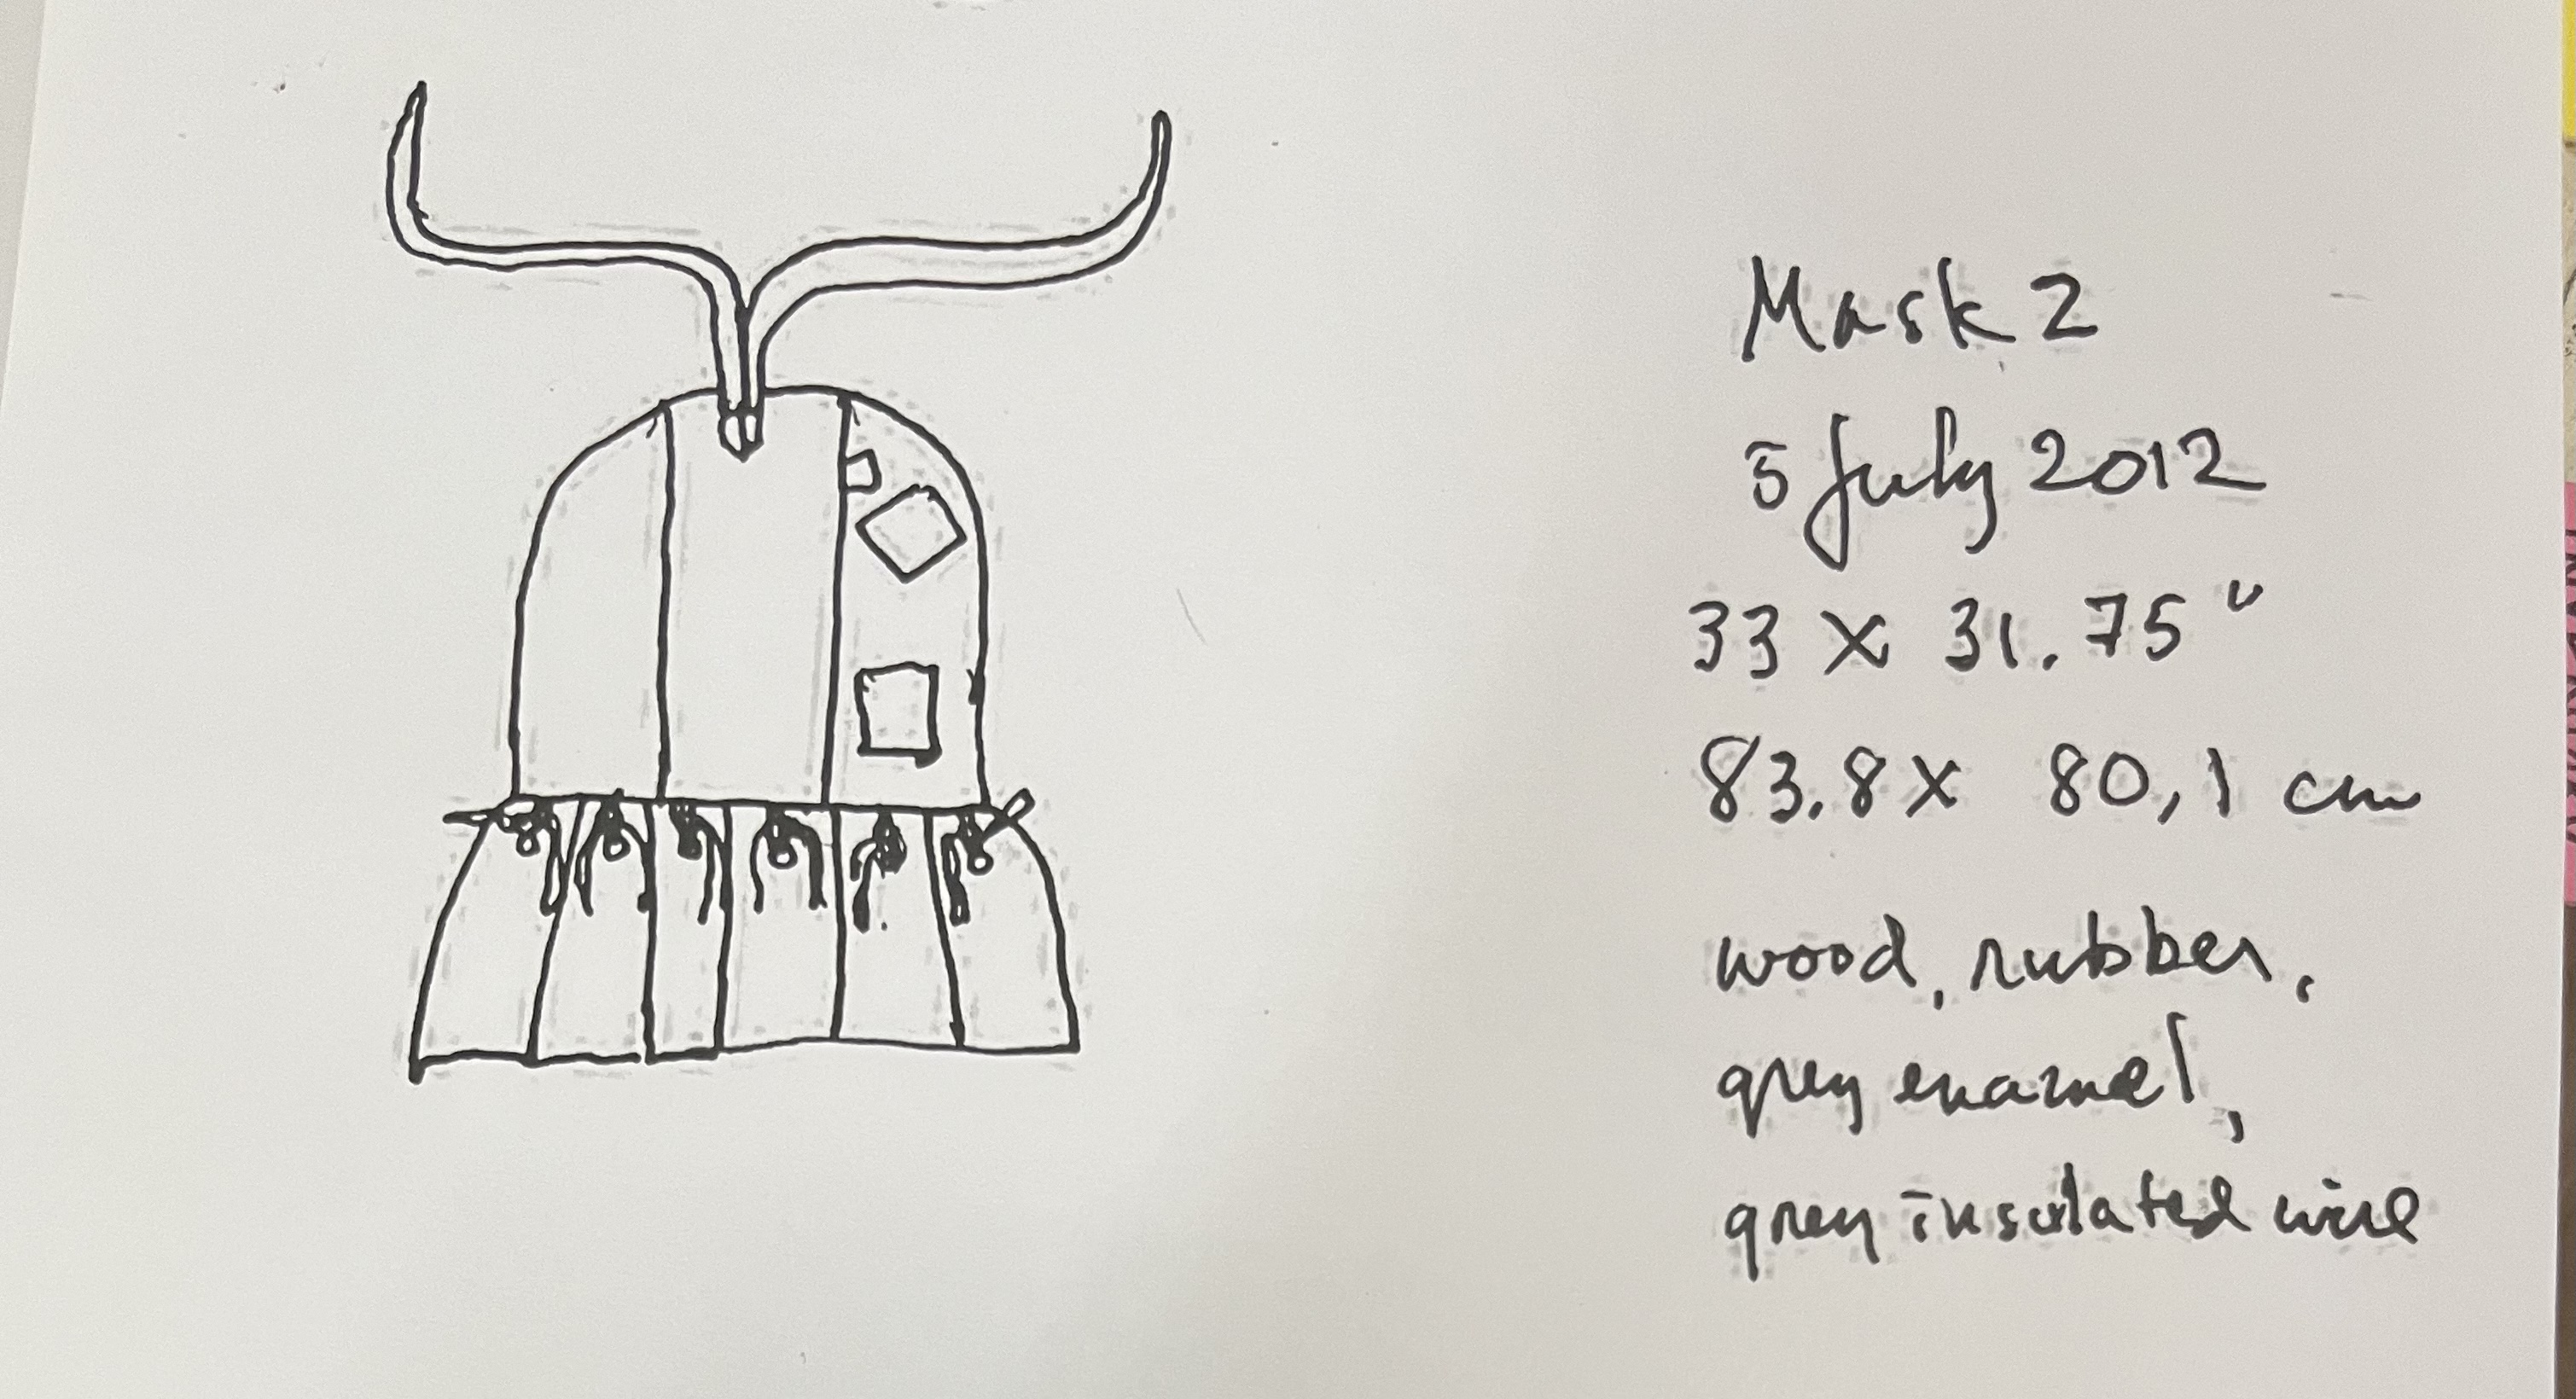 Mask 2
5 July 2012
33 x 31.75"
83.8 x 80,1 cm
wood, rubber,
grey enamel,
grey insulated wire